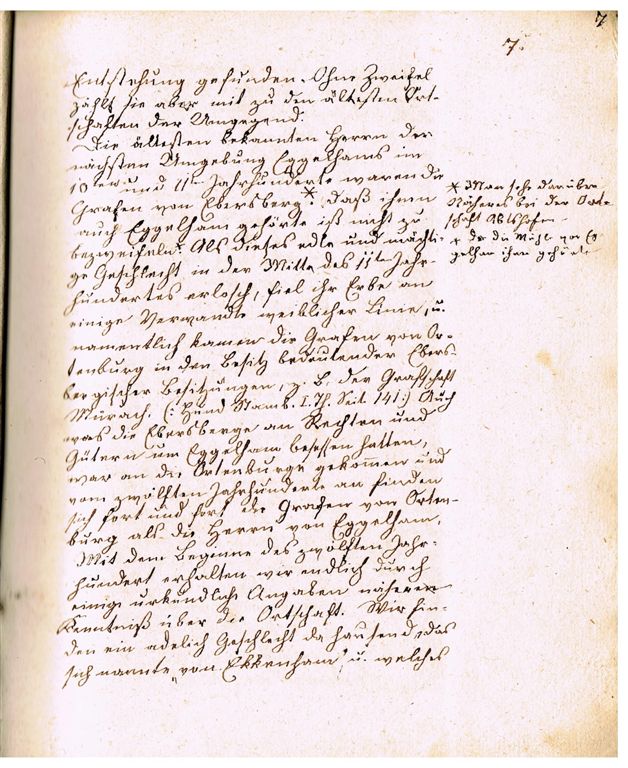 7
7.
Entstehung gefunden. Ohne Zweifel
zählt sie aber mit zu den ältesten Ort-
schaften der Umgegend.
Die ältesten bekannten Herrn der
nächsten Umgebung Eggelhams im
10ten und 11ten Jahrhunderte waren die
Grafen von Ebersberg *; daß ihnen
auch Eggelham gehörte ist nicht zu
bezweifeln. Als dieses edle und mächti-
ge Geschlecht in der Mitte des 11ten Jahr-
hundertes erlosch, fiel ihr Erbe an
einige Verwandte weiblicher Linie, u.
namentlich kamen die Grafen von Or-
tenburg in den Besitz bedeutender Ebers-
bergischer Besitzungen, z. B. der Grafschaft
Murach. (: Hund Stamb. I. Th. Seit 141:) Auch
was die Ebersberge an Rechten und
Gütern um Eggelham besessen hatten,
war an die Ortenburge gekommen und
vom zwölften Jahrhunderte an finden
sich fort und fort die Grafen von Orten-
burg als die Herrn von Eggelham.
Mit dem Beginne des zwölften Jahr-
hundert erhalten wir endlich durch
einige urkundliche Angaben nähere
Kenntniß über die Ortschaft. Wir fin-
den ein adelich Geschlecht da hausend, das
sich nannte „von Ekkenham", u. welches
* Man sehe darüber
Näheres bei der Ort-
schaft Abtshofen